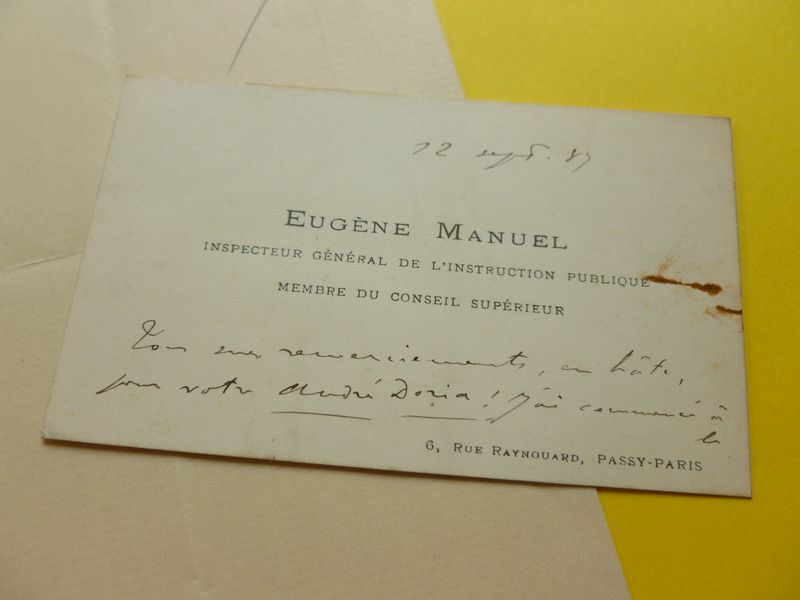 12 sept. 89
EUGÈNE MANUEL
INSPECTEUR GÉNÉRAL DE L'INSTRUCTION PUBLIQUE
MEMBRE DU CONSEIL SUPÉRIEUR
Tous mes remerciements, en hâte,
pour votre André Doria ! J'ai commencé à
le
6, RUE RAYNOUARD, PASSY-PARIS